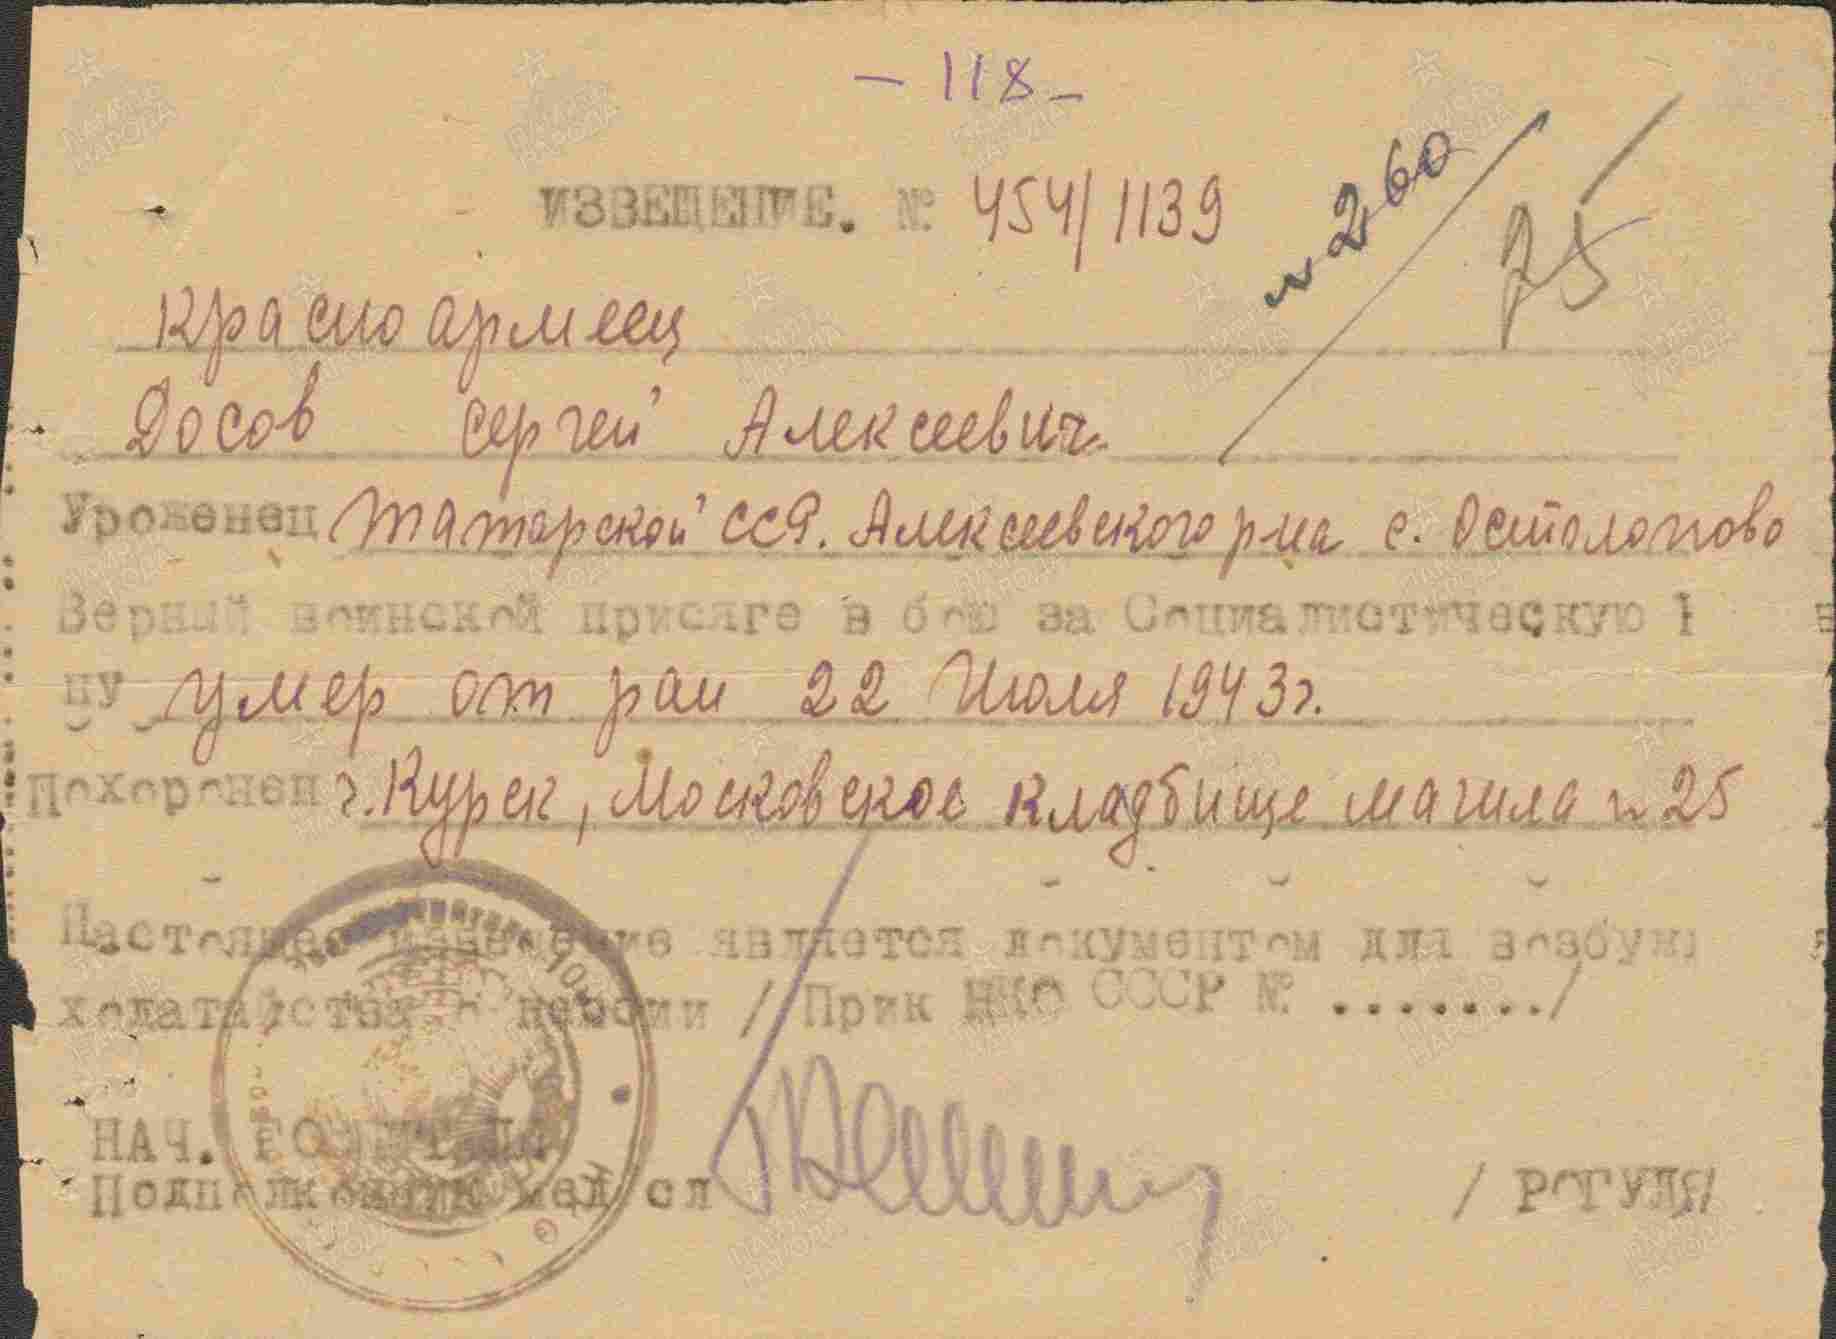 - 118 -
ИЗВЕЩЕНИЕ. № 454/1139
№ 260
75
Красноармеец
Досов Сергей Алексеевич.
Уроженец Татарской ССР. Алексеевского р-на с. Остолопово
Верный воинской присяге в бою за Социалистическую
ну умер от ран 22 Июля 1943 г.
Похоронен г. Курск, Московское кладбище магила № 25
Настоящее извещение является документом для возбужд
ходатайства о пенсии / Прик НКО СССР № ......./
НАЧ. ГОСПИТАЛЯ
Подполковник мед/сл / РОГУЛЯ/
ПАМЯТЬ НАРОДА